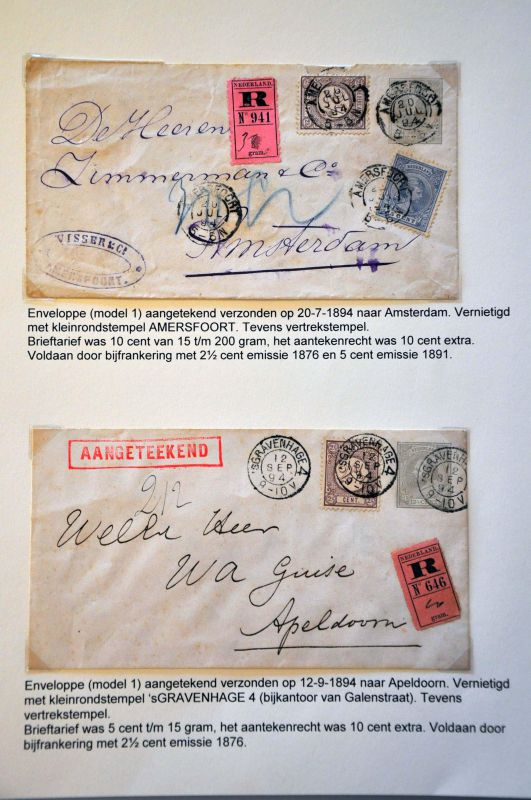 NEDERLAND.
R
N° 941
gram.
AMERSFOORT
20
JUL
94
De Heeren
Zimmerman & Co.
Amsterdam
VISSER & Cº
AMERSFOORT.
AMERSFOORT
20
JUL
94
Enveloppe (model 1) aangetekend verzonden op 20-7-1894 naar Amsterdam. Vernietigd
met kleinrondstempel AMERSFOORT. Tevens vertrekstempel.
Brieftarief was 10 cent van 15 t/m 200 gram, het aantekenrecht was 10 cent extra.
Voldaan door bijfrankering met 2½ cent emissie 1876 en 5 cent emissie 1891.
AANGETEEKEND
'SGRAVENHAGE 4
12
SEP
94
6-10V
'SGRAVENHAGE 4
12
SEP
94
CENT
'SGRAVENHAGE 4
12
SEP
94
2½
WelEd Heer
W A Guise
Apeldoorn
NEDERLAND.
R
N° 646
gram.
Enveloppe (model 1) aangetekend verzonden op 12-9-1894 naar Apeldoorn. Vernietigd
met kleinrondstempel 'sGRAVENHAGE 4 (bijkantoor van Galenstraat). Tevens
vertrekstempel.
Brieftarief was 5 cent t/m 15 gram, het aantekenrecht was 10 cent extra. Voldaan door
bijfrankering met 2½ cent emissie 1876.